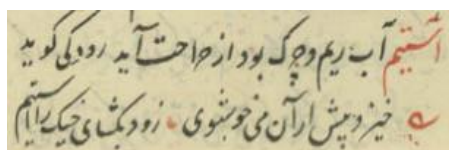 اشتیم آب ریم و چرک بود از جراحت آید رودکی گوید
خیز و پیش آر آن می خوشبوی زود بگشای خیک را استیم